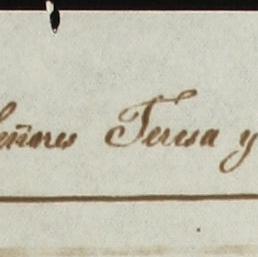 eñores Teresa y